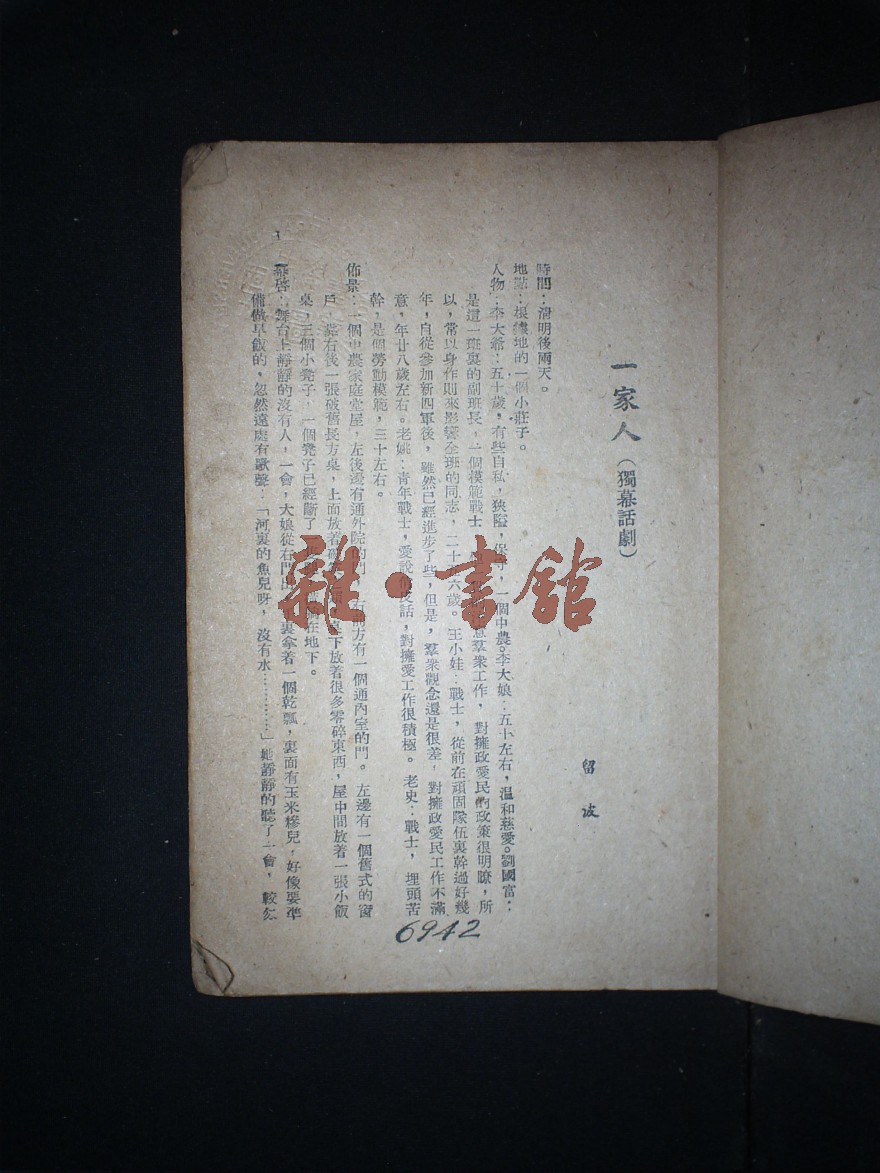 一家人（獨幕話劇）
留波
時間：清明後兩天。
地點：根據地的一個小莊子。
人物：李大爺：五十歲，有些自私，狹隘，保守，一個中農。李大娘：五十左右，温和慈愛。劉國富：
是這一班裏的副班長，一個模範戰士，意羣衆工作，對擁政愛民的政策很明瞭，所
以，常以身作則來影響全班的同志，二十五六歲。王小娃：戰士，從前在頑固隊伍裏幹過好幾
年，自從參加新四軍後，雖然已經進步了些，但是，羣衆觀念還是很差，對擁政愛民工作不滿
意，年廿八歲左右。老姚：青年戰士，愛說話，對擁愛工作很積極。老史：戰士，埋頭苦
幹，是個勞動模範，三十左右。
佈景：一個中農家庭堂屋，左後邊有通外院的門，右前方有一個通內室的門。左邊有一個舊式的窗
戶，靠右後一張破舊長方桌，上面放着下放着很多零碎東西，屋中間放着一張小飯
桌，三個小凳子，一個凳子已經斷了在地下。
幕啓：舞台上靜靜的沒有人，一會，大娘從右門出裏拿着一個乾瓢，裏面有玉米糝兒，好像要準
備做早飯的，忽然遠處有歌聲：「河裏的魚兒呀，沒有水…………」她靜靜的聽了一會，較
6942
雜·書館